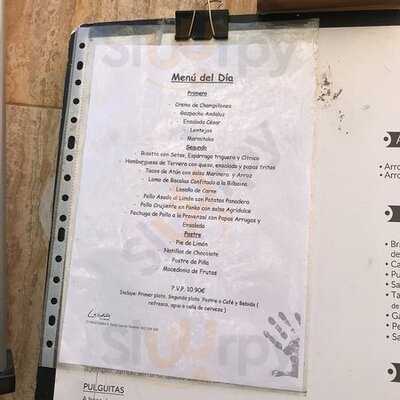 Menú del Día
Primero
- Crema de Champiñones
- Gazpacho Andaluz
- Ensalada César
- Lentejas
- Marmitako
Segundo
- Risotto con Setas, Espárrago triguero y Cítrico
- Hamburguesa de Ternera con queso, ensalada y papas fritas
- Tacos de Atún con salsa Marinera y Arroz
- Lomo de Bacalao Confitado a la Bilbaína
- Lasaña de Carne
- Pollo Asado al Limón con Patatas Panadera
- Pollo Crujiente en Panko con salsa Agridulce
- Pechuga de Pollo a la Provenzal con Papas Arrugas y
Ensalada
Postre
- Pie de Limón
- Natillas de Chocolate
- Postre de Piña
- Macedonia de Frutas
P.V.P. 10.90€
Incluye: Primer plato, Segundo plato, Postre o Café y Bebida (
refresco, agua o caña de cerveza )
PULGUITAS
• Arro
• Arro